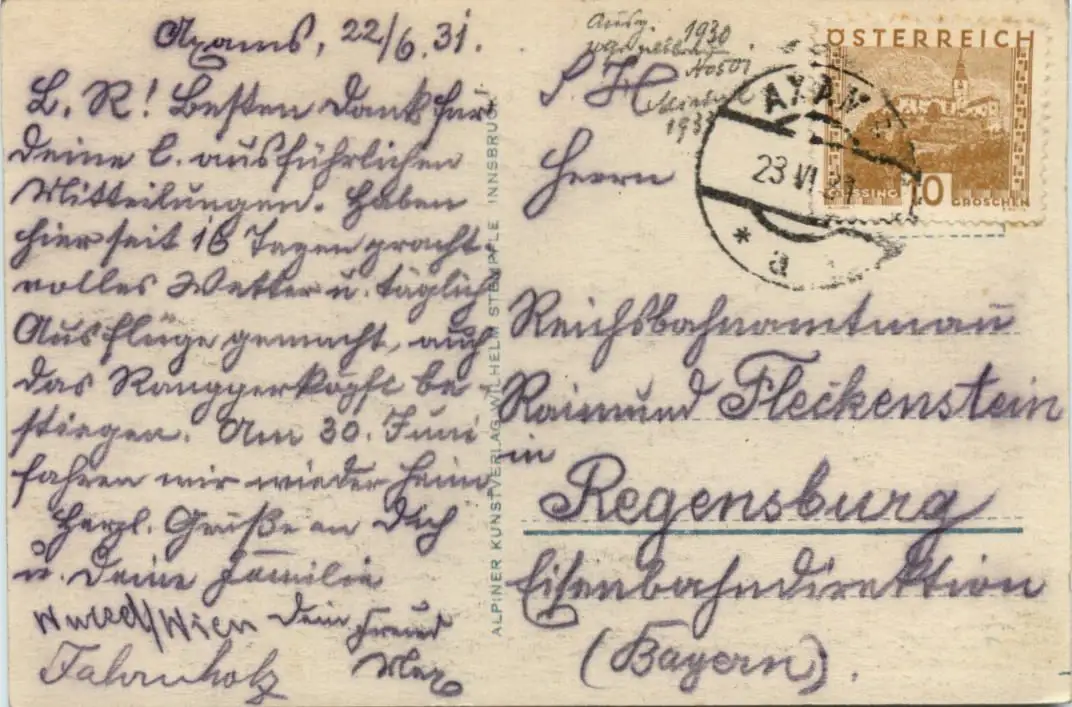 Axams, 22/6.31.
L. R! Besten Dank für
deine l. ausführlichen
Mitteilungen. Haben
hier seit 16 Tagen pracht-
volles Wetter u. täglich
Ausflüge gemacht, auch
das Ranggerköpfl be-
stiegen. Am 30. Juni
fahren wir wieder heim
Herzl. Grüße an Dich
u. Deine Familie
Wien Dein Freund
Max
ALPINER KUNSTVERLAG WILHELM STEMPFLE INNSBRUCK
1930
ÖSTERREICH
GÜSSING 10 GROSCHEN
AXAMS
23 VI 31
* a
S. H.
Herrn
Reichsbahnamtmann
Raimund Fleckenstein
in
Regensburg
Eisenbahndirektion
(Bayern).